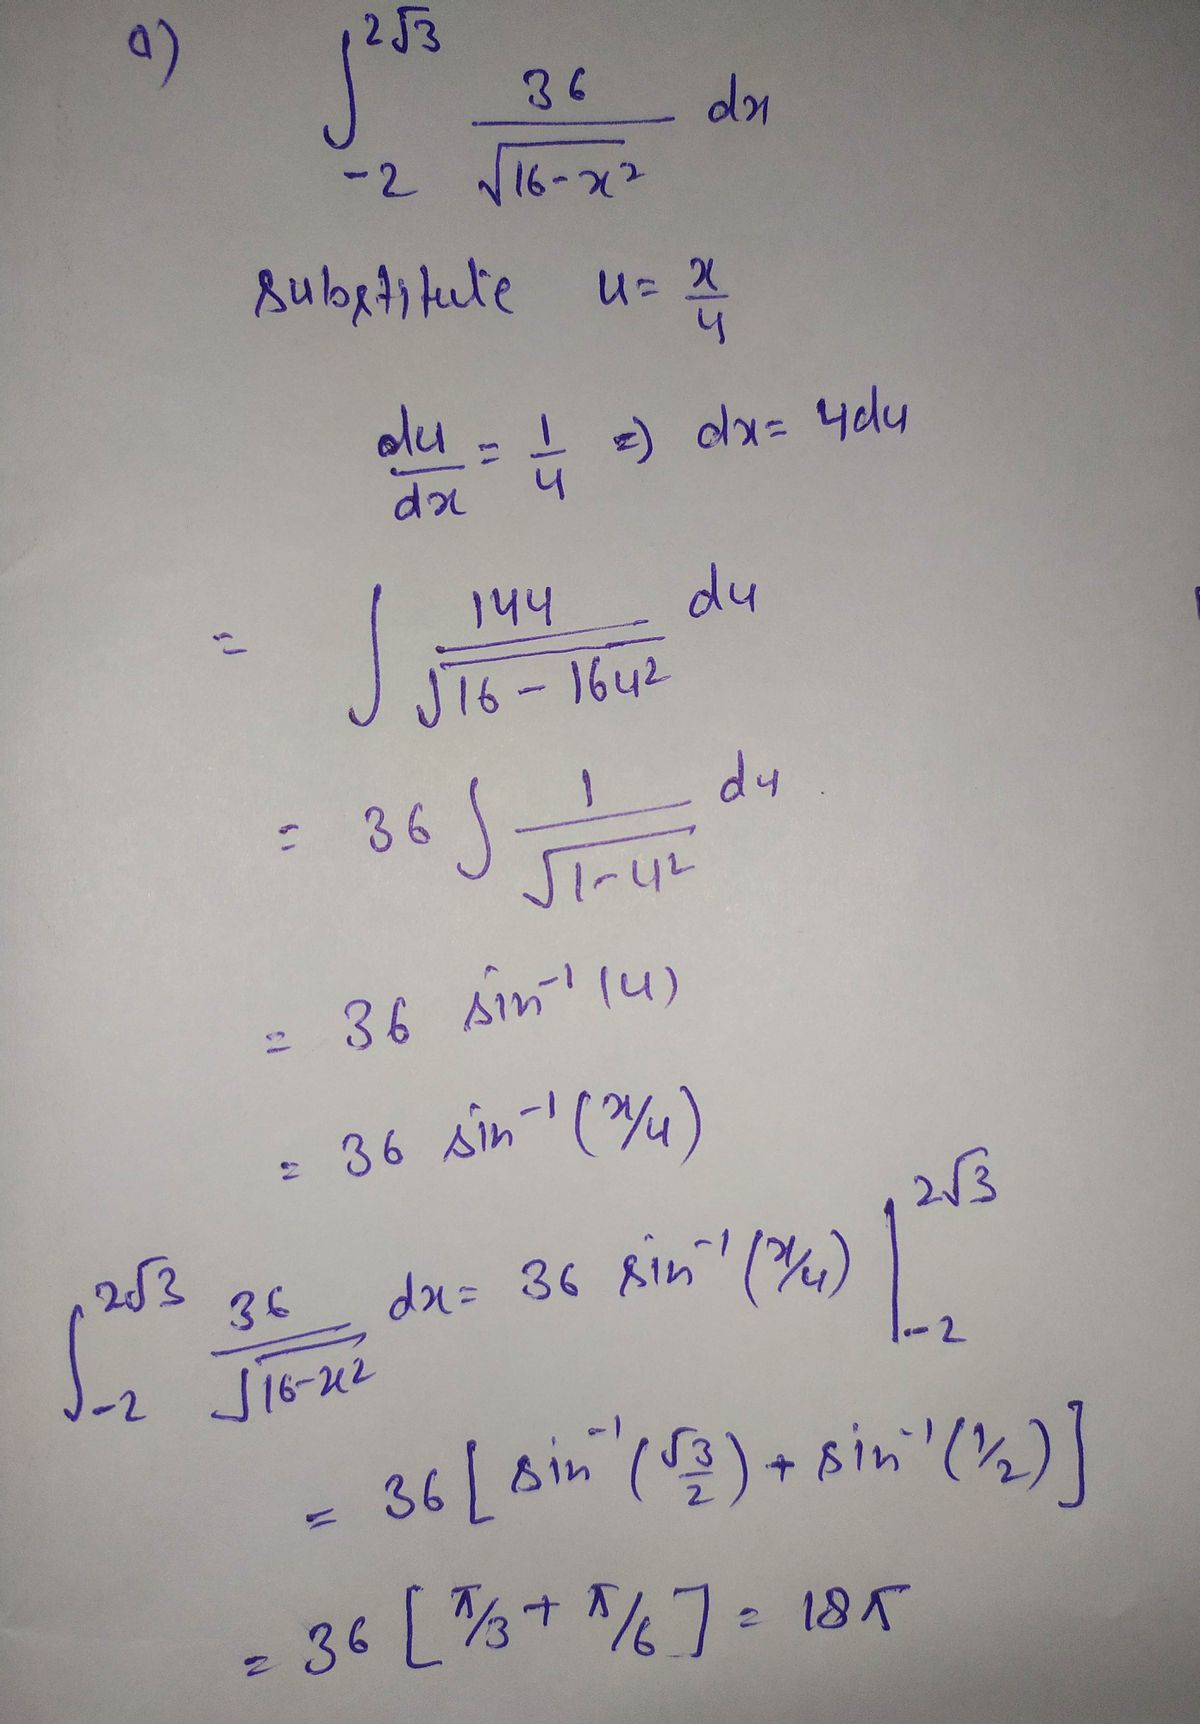 a) ∫_{-2}^{2√3} 36/√(16-x²) dx
substitute u = x/4
du/dx = 1/4 ⇒ dx = 4du
= ∫ 144/√(16-16u²) du
= 36 ∫ 1/√(1-u²) du
= 36 sin⁻¹(u)
= 36 sin⁻¹(x/4)
∫_{-2}^{2√3} 36/√(16-x²) dx = 36 sin⁻¹(x/4) |_{-2}^{2√3}
= 36 [sin⁻¹(√3/2) + sin⁻¹(1/2)]
= 36 [π/3 + π/6] = 18π